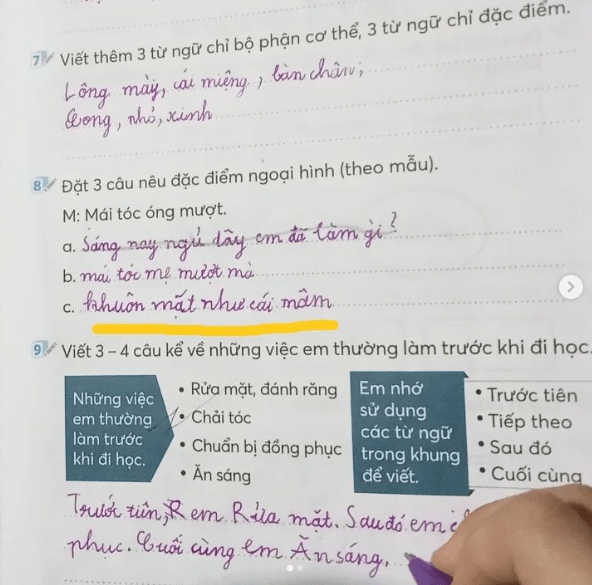 7 Viết thêm 3 từ ngữ chỉ bộ phận cơ thể, 3 từ ngữ chỉ đặc điểm.
Lông mày, cái miệng, bàn chân,
Cong, nhỏ, xinh
8 Đặt 3 câu nêu đặc điểm ngoại hình (theo mẫu).
M: Mái tóc óng mượt.
a. Sáng nay ngủ dậy em đã làm gì?
b. mái tóc mẹ mượt mà
c. khuôn mặt như cái mâm
9 Viết 3 – 4 câu kể về những việc em thường làm trước khi đi học.
Những việc
em thường
làm trước
khi đi học.
• Rửa mặt, đánh răng
• Chải tóc
• Chuẩn bị đồng phục
• Ăn sáng
Em nhớ
sử dụng
các từ ngữ
trong khung
để viết.
• Trước tiên
• Tiếp theo
• Sau đó
• Cuối cùng
Trước tiên, em Rửa mặt. Sau đó em
phục. Cuối cùng em Ăn sáng.